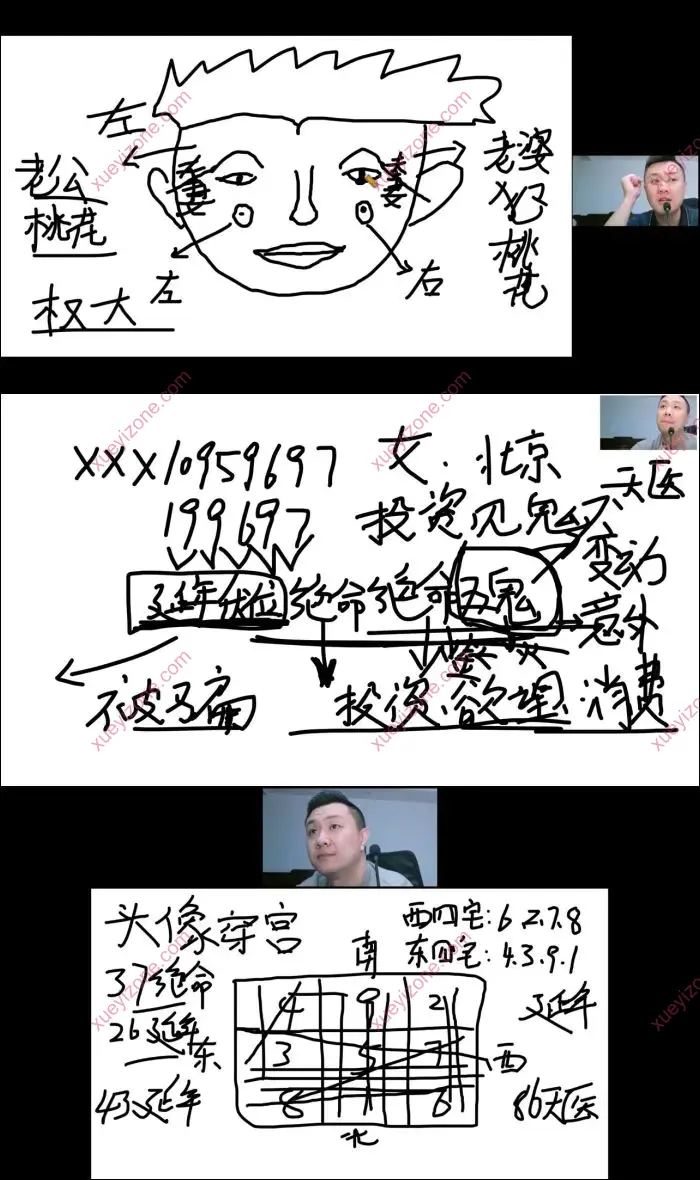 左
老公
桃花
权大
妻妾
妻妾
老婆
桃花
左
右
XXX10959697 女.北京
199697 投资见鬼
天医
延年伏位绝命绝命五鬼
变动
意外
被骗 投资.欲望.消费
头像穿宫
西四宅:6.2.7.8
东四宅:4.3.9.1
南
37绝命
4 9 2
26延年
延年
东
3 5 7
西
43延年
8 1 6
86天医
北
xueyizone.com
xueyizone.com
xueyizone.com
xueyizone.com
xueyizone.com
xueyizone.com
xueyizone.com
xueyizone.com
xueyizone.com
xueyizone.com
xueyizone.com
xueyizone.com